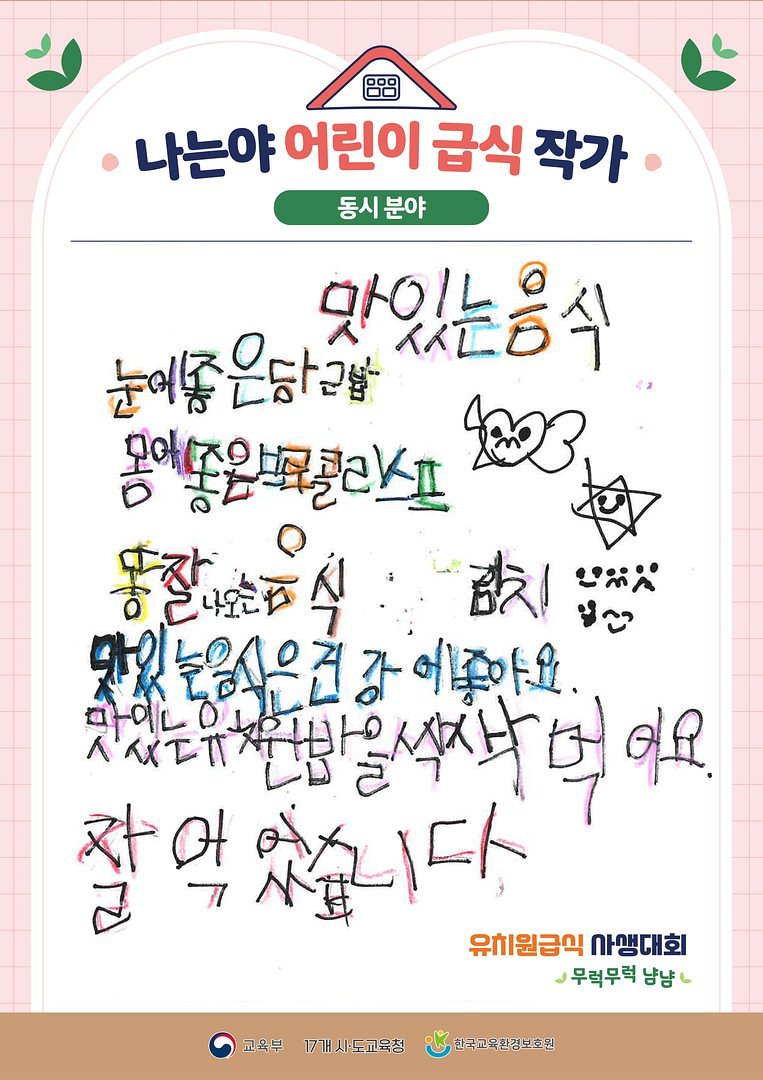 나는야 어린이 급식 작가
동시 분야
맛있는음식
눈에좋은당근밥
몸에좋은브로콜리스프
똥잘나오는음식 김치
맛있는음식은건강에좋아요.
맛있는유치원밥을싹싹먹어요.
잘먹었습니다
유치원급식 사생대회
무럭무럭 냠냠
교육부 17개 시·도교육청 한국교육환경보호원